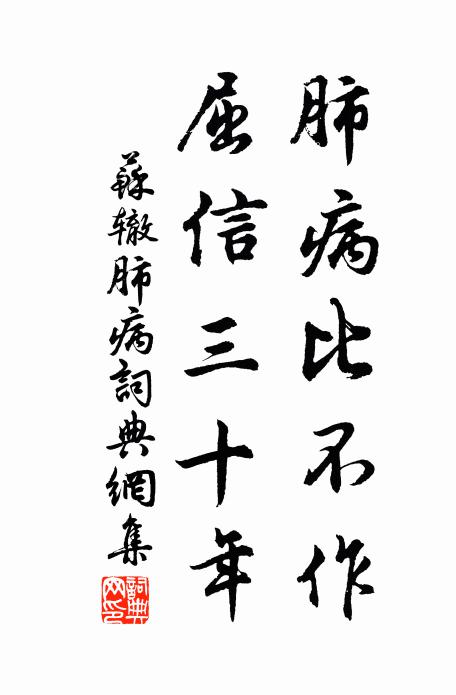 肺病比不作
屈信三十年
蘇辙肺病詞典網集
詞典網印